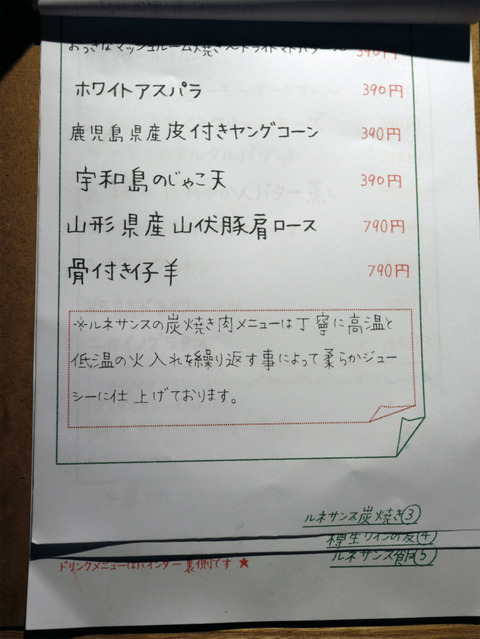 おっきなマッシュルーム焼き〜ドライトマトバター〜 390円
ホワイトアスパラ 390円
鹿児島県産皮付きヤングコーン 390円
宇和島のじゃこ天 390円
山形県産山伏豚肩ロース 790円
骨付き仔羊 790円
※ルネサンスの炭焼き肉メニューは丁寧に高温と
低温の火入れを繰り返す事によって柔らかジュー
シーに仕上げております。
ルネサンス炭焼き③
樽生ワインの友④
ルネサンス飯⑤
ドリンクメニューはバインダー裏側です★